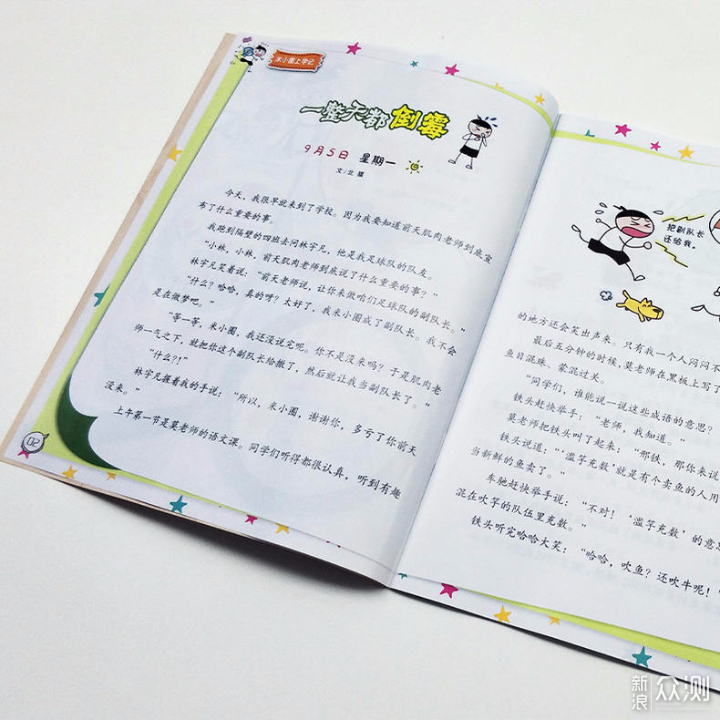 米小圈上学记
一整天都倒霉
9月5日 星期一
文/北猫
今天，我很早就来到了学校。因为我要知道前天肌肉老师到底宣
布了什么重要的事。
我跑到隔壁的四班去问林宇凡，他是我足球队的队友。
“小林，小林，前天肌肉老师到底说了什么重要的事？”
林宇凡笑着说：“前天老师说，让你来做咱们足球队的副队长。”
“什么？哈哈，真的呀？太好了，我米小圈成了副队长。我不会
是在做梦吧。”
“等一等，米小圈，我还没说完呢。你不是没来吗？于是肌肉老
师一气之下，就把你这个副队长给撤了，然后就让我当副队长了。”
“什么？！”
林宇凡握着我的手说：“所以，米小圈，谢谢你，多亏了你前天
没来。”
上午第一节是莫老师的语文课。同学们听得都很认真，听到有趣
02
把副队长
还给我。
的地方还会笑出声来。只有我一个人闷闷不
最后五分钟的时候，莫老师在黑板上写了
鱼目混珠、蒙混过关。
“同学们，谁能说一说这些成语的意思？
铁头赶快举手：“老师，我知道。”
莫老师把铁头叫了起来：“邢铁，那你来说
铁头说道：“‘滥竽充数’就是有个卖鱼的人用
当新鲜的鱼卖了。”
车驰赶快举手说：“不对！‘滥竽充数’的意思
混在吹竽的队伍里充数。”
铁头听完哈哈大笑：“哈哈，吹鱼？还吹牛呢！”
新浪 众测